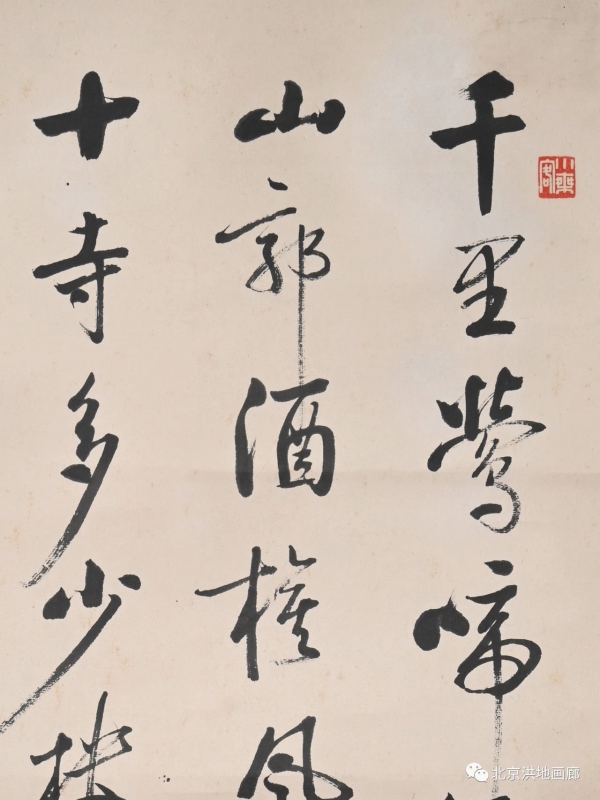 千里鶯啼
山郭酒旗風
十寺多少樓
北京洪地画廊